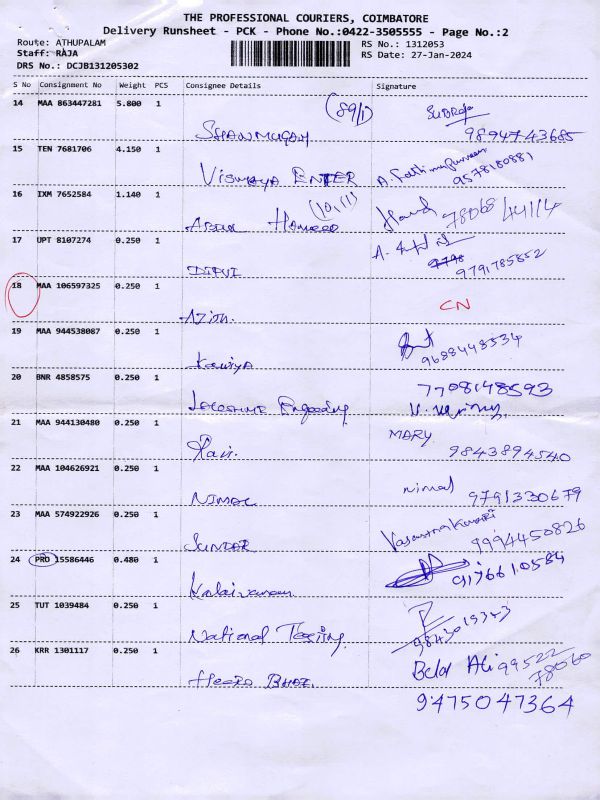 THE PROFESSIONAL COURIERS, COIMBATORE
Delivery Runsheet - PCK - Phone No.:0422-3505555 - Page No.:2
Route: ATHUPALAM
Staff: RAJA
DRS No.: DCJB131205302
RS No.: 1312053
RS Date: 27-Jan-2024
S No Consignment No Weight PCS Consignee Details Signature
14 MAA 863447281 5.800 1 (89/1)
SHANMUGAM 9894743685
15 TEN 7681706 4.150 1
ENTER 9578180881
16 IXM 7652584 1.140 1
17 UPT 8107274 0.250 1
9791785852
18 MAA 106597325 0.250 1 CN
19 MAA 944538087 0.250 1
9688448534
20 BNR 4858575 0.250 1 7708148593
21 MAA 944130480 0.250 1 MARY
9843894540
22 MAA 104626921 0.250 1 nimal
NIMAL 9791330679
23 MAA 574922926 0.250 1 Vasanthakumari
9994450826
24 PRO 15586446 0.480 1
9176610584
25 TUT 1039484 0.250 1
National 9843019343
26 KRR 1301117 0.250 1 Ali 99522
78060
9475047364